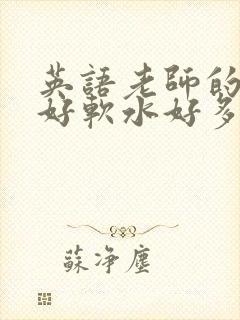 英語老師的
好軟水好多
蘇淨塵